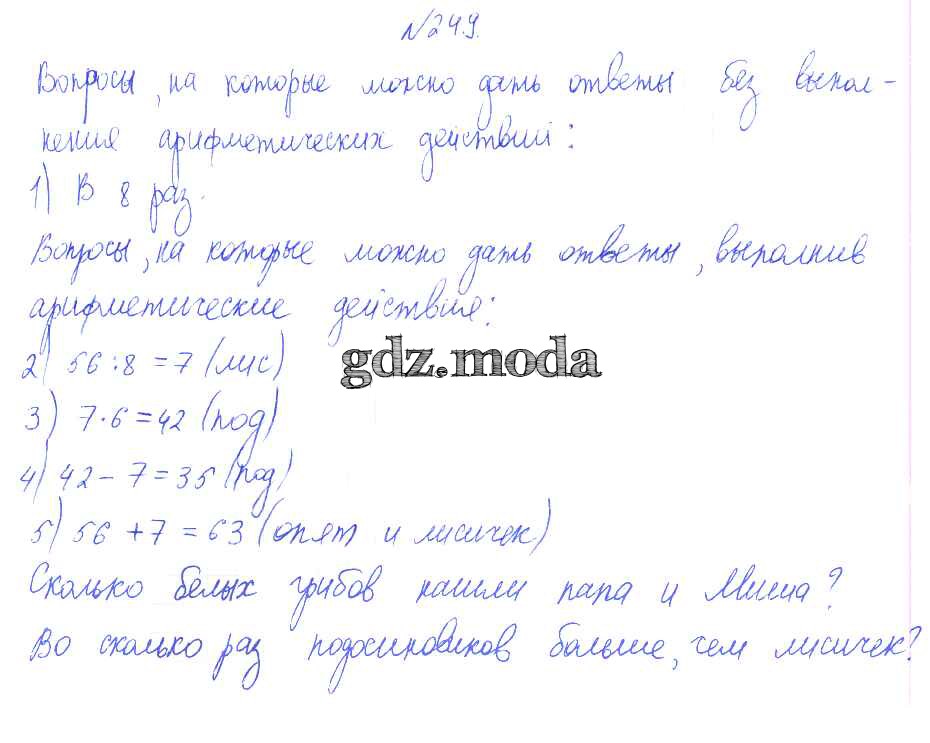 №249.
Вопросы, на которые можно дать ответы без выпол-
нения арифметических действий:
1) В 8 раз.
Вопросы, на которые можно дать ответы, выполнив
арифметические действия:
2) 56:8=7 (лис)
gdz.moda
3) 7·6=42 (под)
4) 42-7=35 (под)
5) 56+7=63 (опят и лисичек)
Сколько белых грибов нашли папа и Миша?
Во сколько раз подосиновиков больше, чем лисичек?